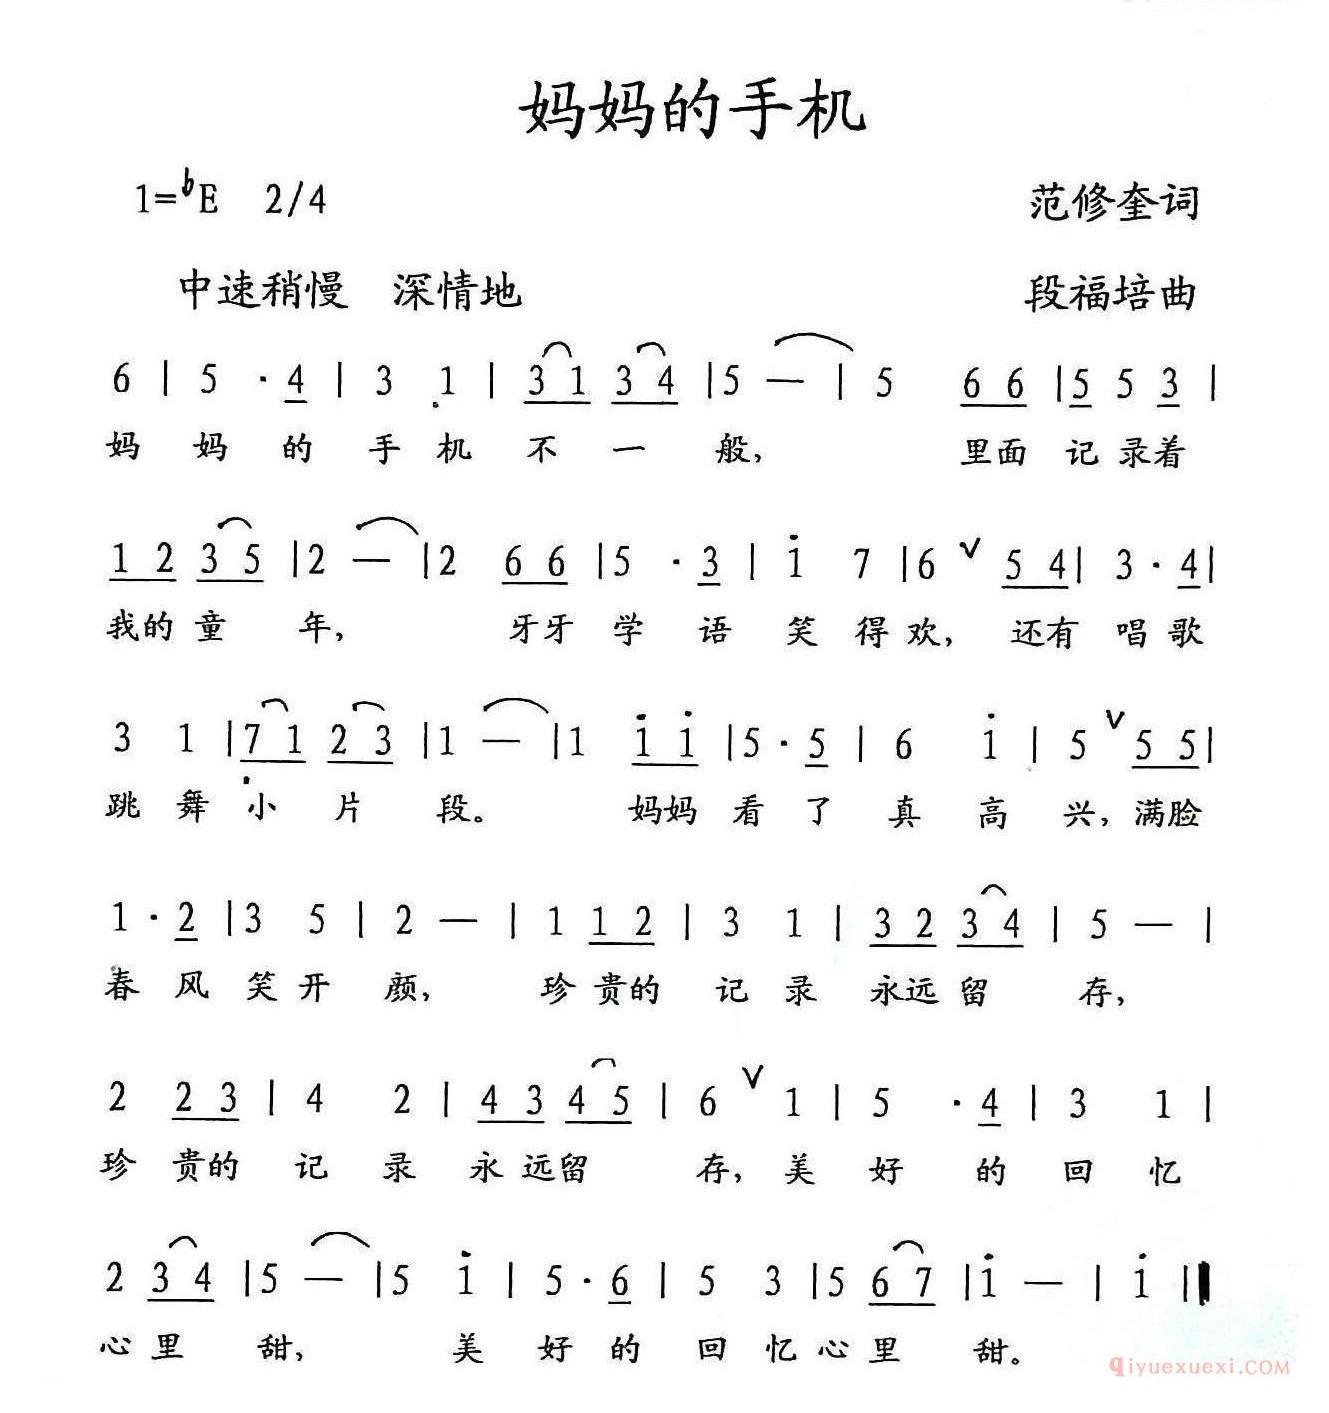 妈妈的手机
1=♭E 2/4 范修奎词
中速稍慢 深情地 段福培曲
6 | 5 · 4 | 3 1 | 3 1 3 4 | 5 — | 5 6 6 | 5 5 3 |
妈 妈 的 手 机 不 一 般， 里面 记 录着
1 2 3 5 | 2 — | 2 6 6 | 5 · 3 | i 7 | 6 ∨ 5 4 | 3 · 4 |
我的 童 年， 牙牙 学 语 笑 得 欢， 还有 唱 歌
3 1 | 7 1 2 3 | 1 — | 1 i i | 5 · 5 | 6 i | 5 ∨ 5 5 |
跳 舞 小 片 段。 妈妈 看 了 真 高 兴， 满脸
1 · 2 | 3 5 | 2 — | 1 1 2 | 3 1 | 3 2 3 4 | 5 — |
春 风 笑 开 颜， 珍 贵的 记 录 永远 留 存，
2 2 3 | 4 2 | 4 3 4 5 | 6 ∨ 1 | 5 · 4 | 3 1 |
珍 贵的 记 录 永 远留 存， 美 好 的 回 忆
2 3 4 | 5 — | 5 i | 5 · 6 | 5 3 | 5 6 7 | i — | i ‖
心 里 甜， 美 好 的 回 忆 心 里 甜。
qiyuexuexi.COM